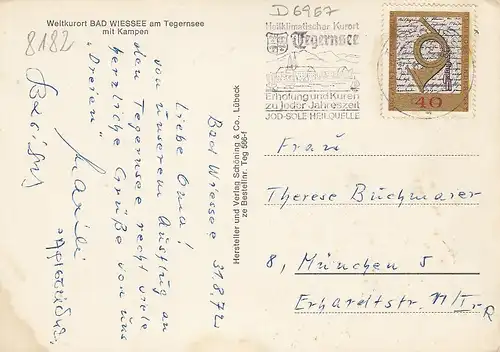 Weltkurort BAD WIESSEE am Tegernsee
mit Kampen
8182
D 6967
Heilklimatischer Kurort
Tegernsee
Erholung und Kuren
zu jeder Jahreszeit
JOD-SOLE HEILQUELLE
40
Bad Wiessee 31.8.72
Liebe Oma!
Von unserem Ausflug an
den Tegernsee recht viele
herzliche Grüße von uns
"Dreien"
Hersteller und Verlag Schöning & Co., Lübeck
zu Bestellnr. Teg 506-f
Frau
Therese Buchmaier
8, München 5
Erhardtstr. 11/I-R